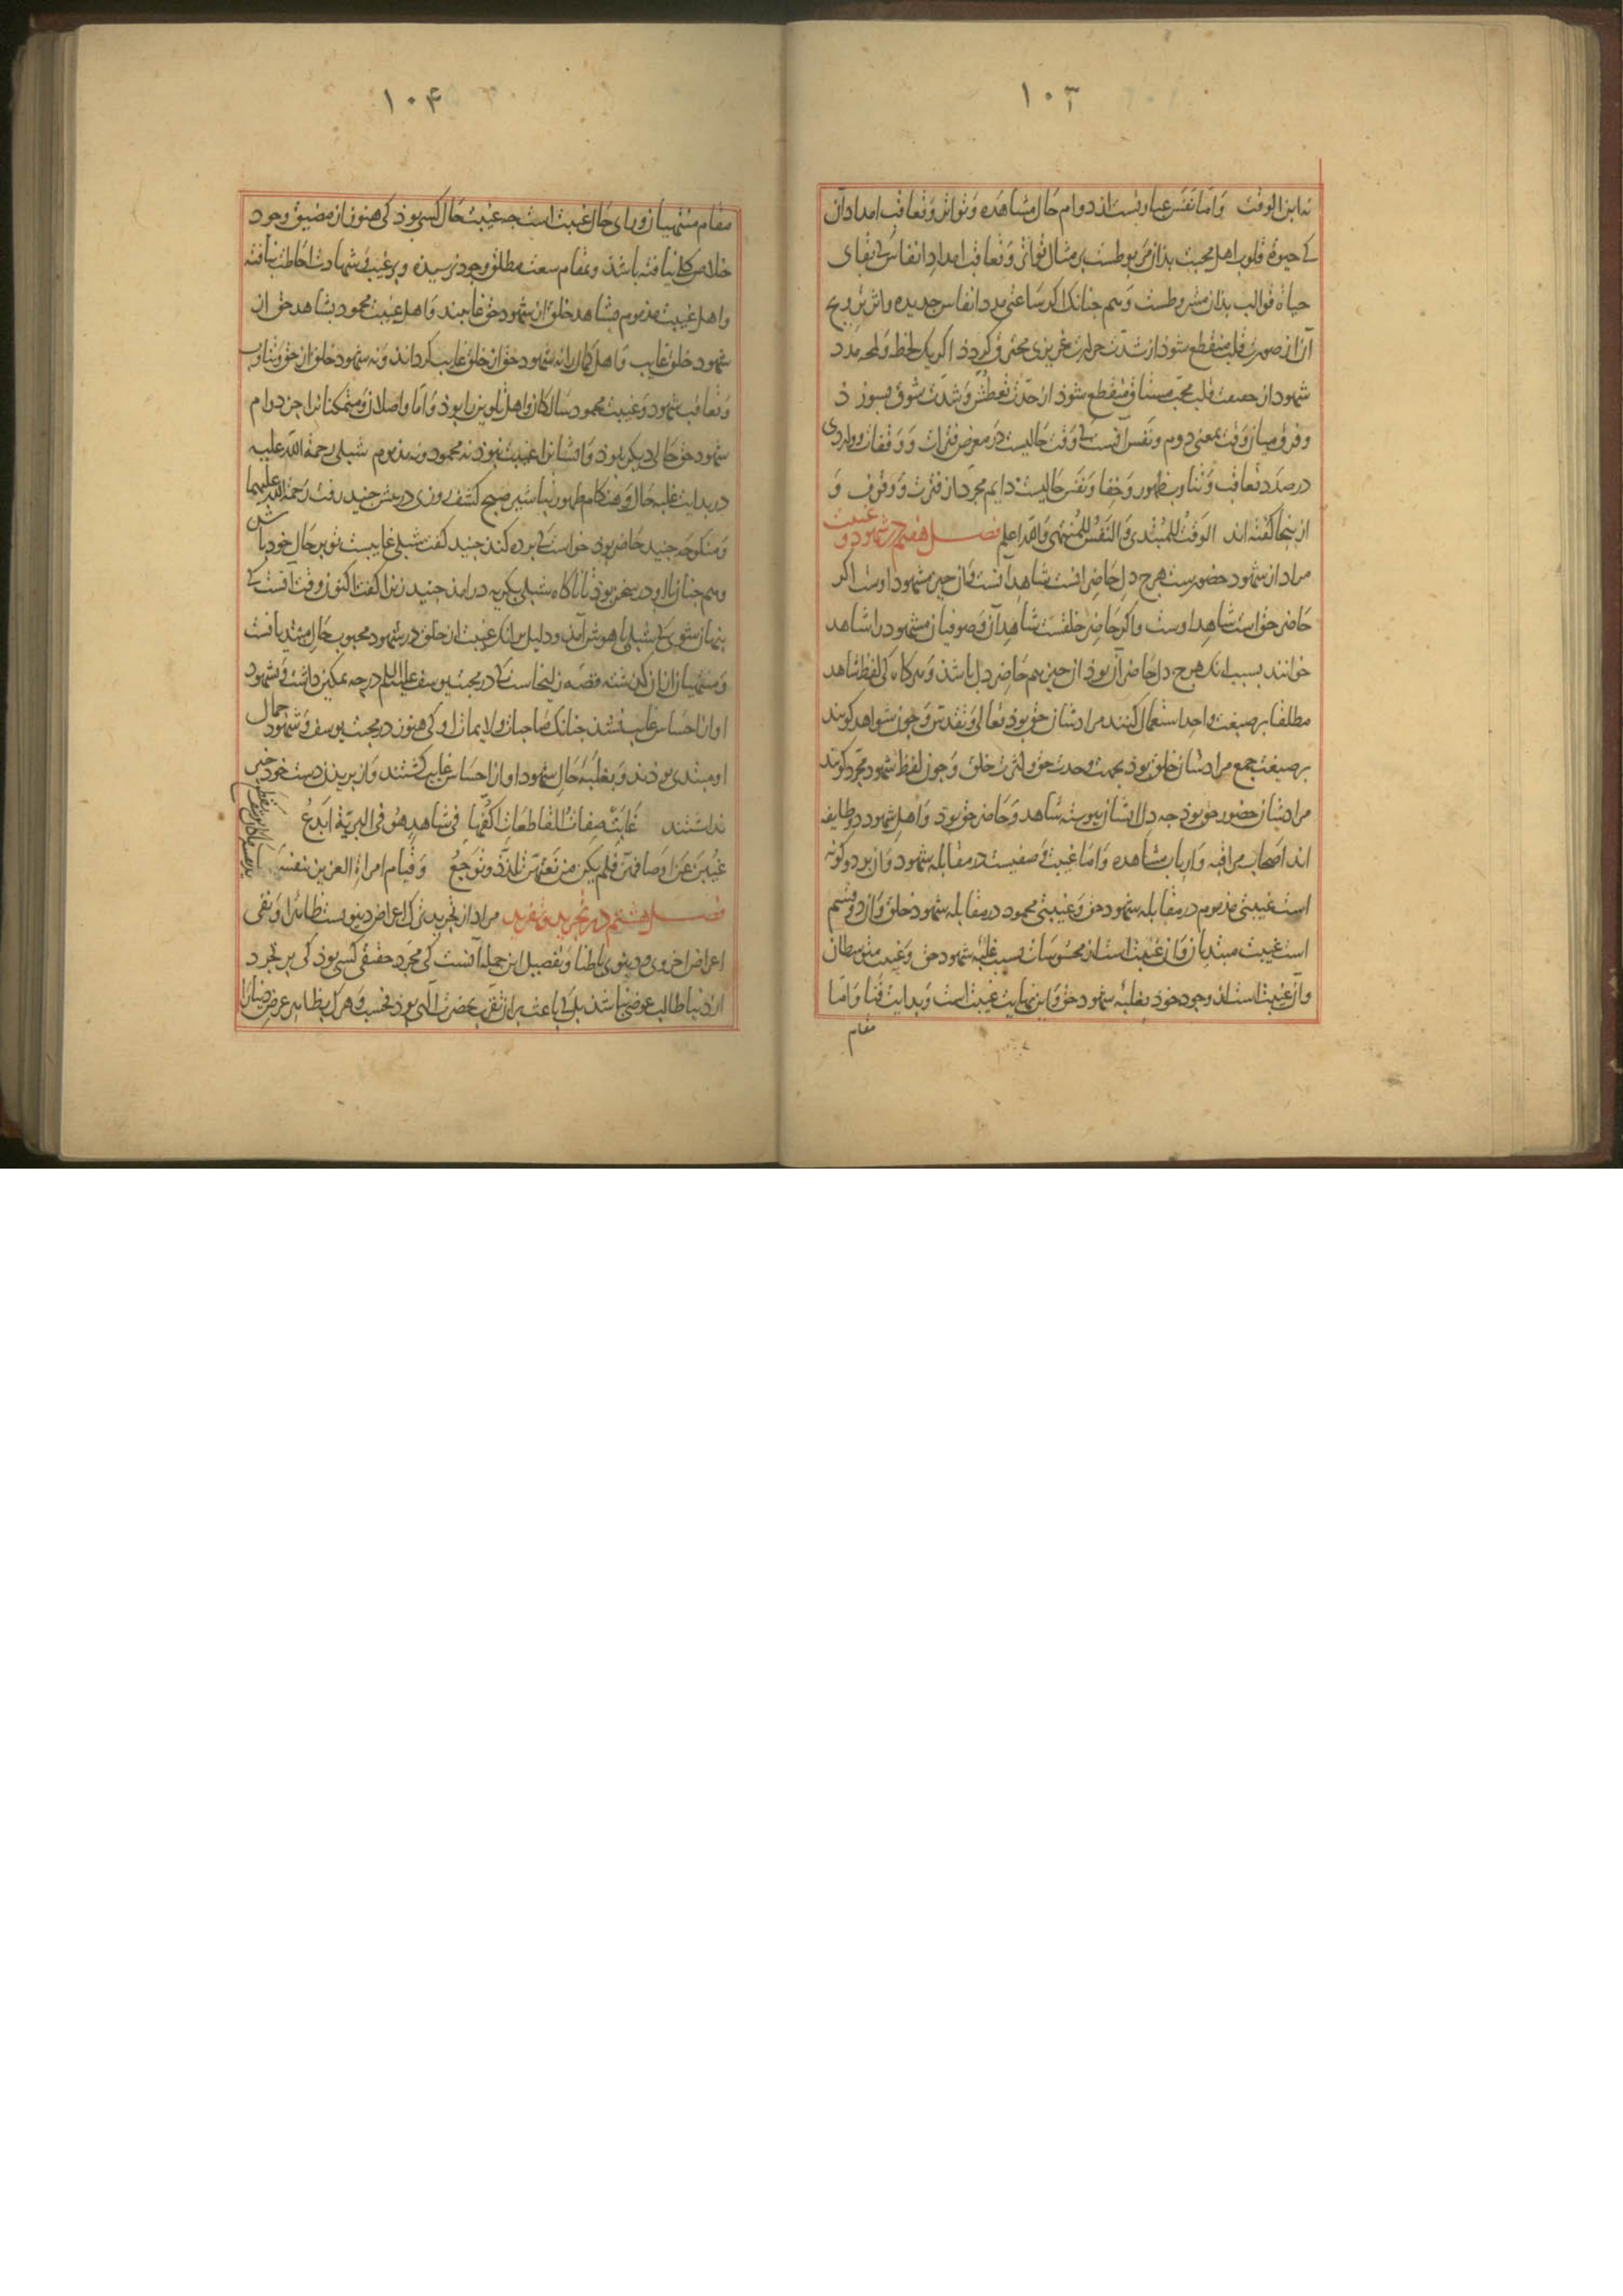 ١٠٣
نه ابن الوقت وَامّا نفَس عبارتست از دوام حَال مشاهَده وَتواتر وَتعاقب امداد آن
کے حیوة قلوب اهل محبت بذان مربوطست بر مثال تواتر وَتعاقب امداد انفاس کے بقای
حیاة قوالب بذان مشروطست وَهم جنانک اکر ساعتی مدد انفاس جدیده واثر ترویح
آن از صورت قلب منقطع شوذ از شدّت حرارت غریزی محترق کردذ اکر یک لحظه ولمحه مدد
شهود از حقیقت قلب محبّ مشتاق منقطع شوذ از حدّت تعطش وَشدّت شوق بسوزذ
وفرق میان وَقت بمعنی دوم ونفَس آنست کے وَقت حالیست در معرض فترات وَوقفات وواردی
در صدَد تعاقب وَتناوب ظهور وَخفا وَنفَس حالیست دایم مجرّد از فترت وَوقوف وَ
ازینجا کفته اند الوَقتُ للمُبتدی وَالنَفَسُ للمُنتهی وَالله اعلم فصل هفتم در شهود وَغیبت
مراد از شهود حضورست هرج دل حاضر انست شاهد آنست وَان جیز مشهود اوست اکر
حَاضر حق است شاهد اوست واکر حَاضر خلقست شاهد آن وَصوفیان مشهود را شاهد
خوانند بسبب انک هرج دل حَاضر آن بوذ ان جیز هم حَاضر دل باشذ وَهرکاه کی لفظ شاهد
مطلقا بر صیغت واحد استعمال کنند مرادشان حق بوذ تعالی وَتقدّس وَجون شواهد کویند
بر صیغت جمع مرادشان خلق بوذ بجهت وحدت حق وکثرت خلق وَجون لفظ شهود مجرّد کویند
مرادشان حضور حق بوذ جه دل ایشان پیوسته شاهد وَحَاضر حق بوذ وَاهل شهود دو طایفه
اند اصحاب مراقبه وَارباب مشاهده وَامّا غیبت وَصفیست در مقابله شهود وَان بر دو کونه
است غیبتی مذموم در مقابله شهود حق وَغیبتی محمود در مقابله شهود خلق وَان دو قسم
است غیبت مبتدیان وَان غیبت است از محسوسات بسبب غلبه شهود حق وَغیبت متوسطان
وآن غیبت است از وجود خوذ بغلبه شهود حق وَاین نهایت غیبت است وَبدایت فنا وَامّا
مقام
١٠۴
مقام منتهیان ورای حَال غیبت است جه غیبت حَال کسی بوذ کی هنوز از مضیق وجود
خلاص کلی نیافته باشذ وبمقام سعت مطلق وجود نرسیذه وبر غیب وَشهادت احاطت نیافته
واهل غیبت مذموم بمشاهد خلق از شهود حق غایبند وَاهل غیبت محمود بشاهد حق از
شهود خلق غایب وَاهل کمال را نه شهود حق از خلق غایب کرداند وَنه شهود خلق از حق وَتناوب
وَتعاقب شهود وَغیبت محمود سالکان واهل تلوین را بوذ وَامّا واصلان وَمتمکنانرا جز دوام
شهود حق حَالی دیکر نبوذ وَایشانرا غیبت نبوذ نه محمود ونه مذموم شبلی رحمة الله علیه
در بدایت غلبه حَال وَهنکام ظهور تباشیر صبح کشف روزی در پیش جنید رفت رحمة الله علیهما
وَمنکوحه جنید حَاضر بوذ خواست کے برده کند جنید کفت شبلی غایبست تو بر حَال خود باش
وهم جنان با او در سخن بوذ تا ناکاه شبلی بکریه درامذ جنید زنرا کفت اکنون وقت آنست کے
پنهان شوی کے شبلی با هوش آمذ ودلیل برانک غیبت از خلق در شهود محبوب حَال مبتدیانست
وَمنتهیان ازان کذشته قصّه زلیخاست کے در محبت یوسف علیه السلم درجه تمکین داشت وَبشهود
او از احساس غایب نشذ جنانک صَاحبات ولایمات او کی هنوز در محبت یوسف وَشهود جمال
او مبتدی بوذند وَبغلبهٔ حَال شهود او از احساس غایب کشتند وَاز بریذن دست خود خبر
نداشتند غَابَت صفاتُ القاطعَات اکفّها فی شاهدٍ هُو فی البریّة ابدَعُ
غیّبنَ عَن اوصافهنّ فلم یکن من نعتهنّ تلذّذ وتوجّعُ وَقیام امراة العزیز بنفسه
فصل هشتم در تجرید وتفرید مراد از تجرید ترک اعراض دنیویست ظاهرا وَنفی
اعراض اخروی ودنیوی باطنا وَتفصیل این جمله آنست کی مجرّد حقیقی کسی بوذ کی بر تجرّد
از دنیا طالب عوضی نباشذ بل کے باعث بران تقرّب بحضرت الهی بوذ فحسب وَهر ک بظاهر عرض دنیارا